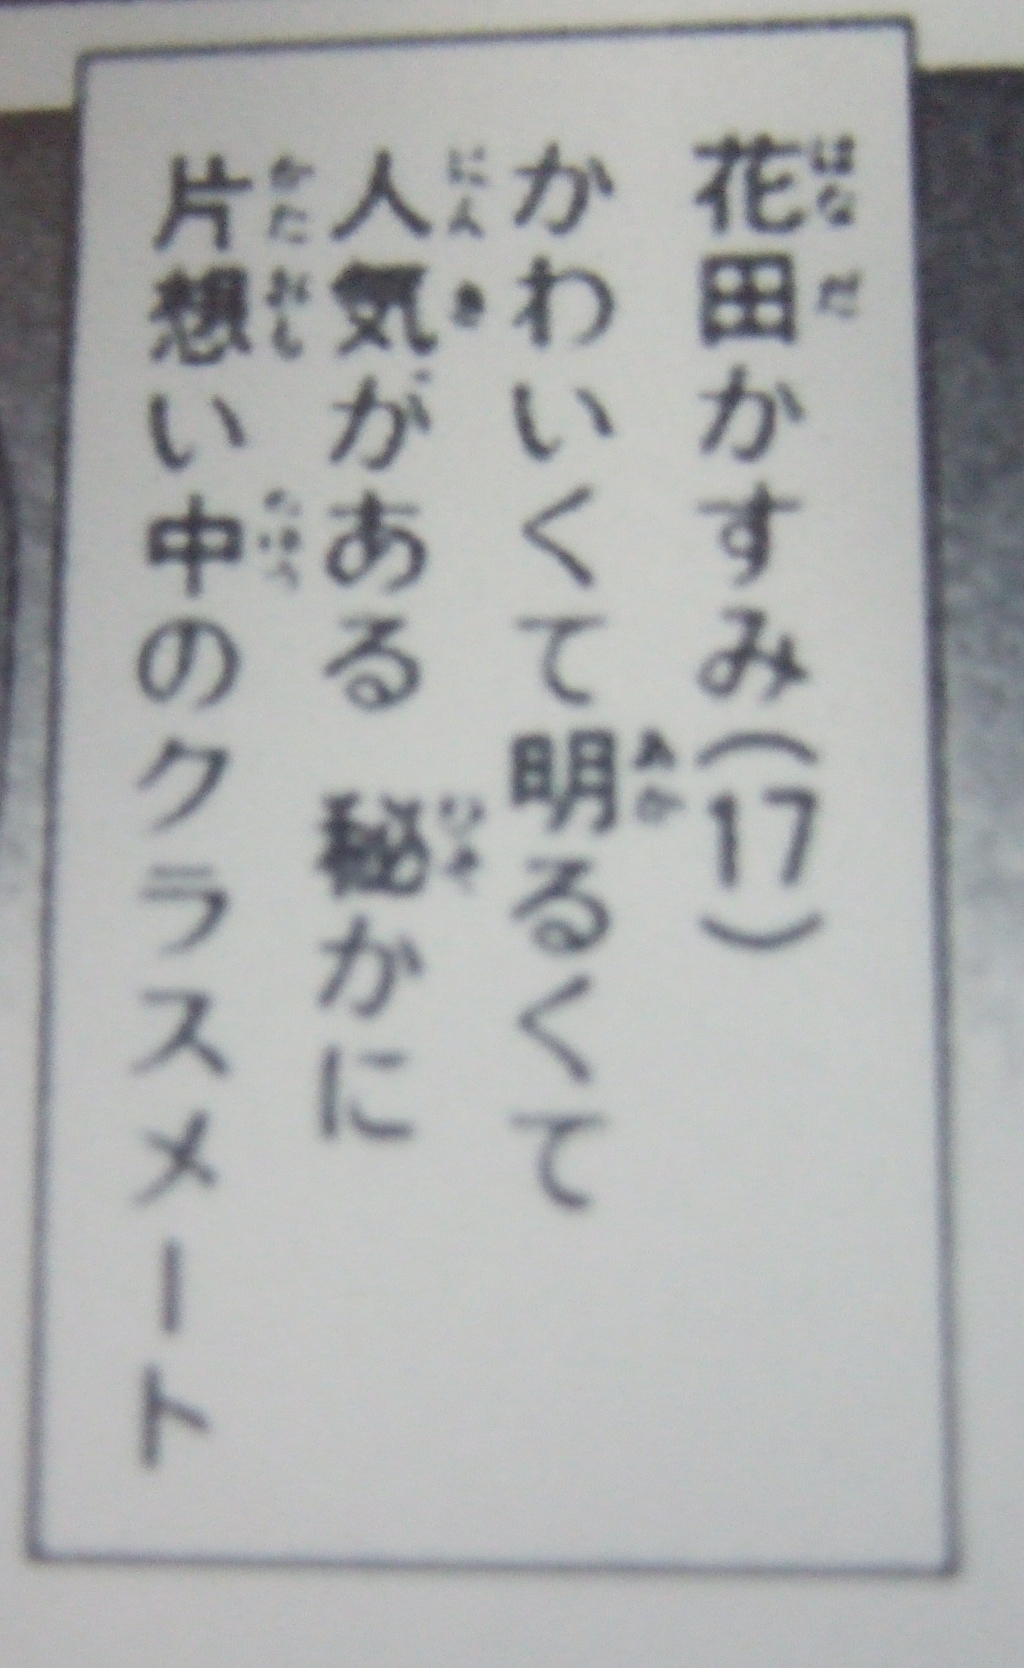 花田かすみ(17)
かわいくて明るくて
人気がある 秘かに
片想い中のクラスメート